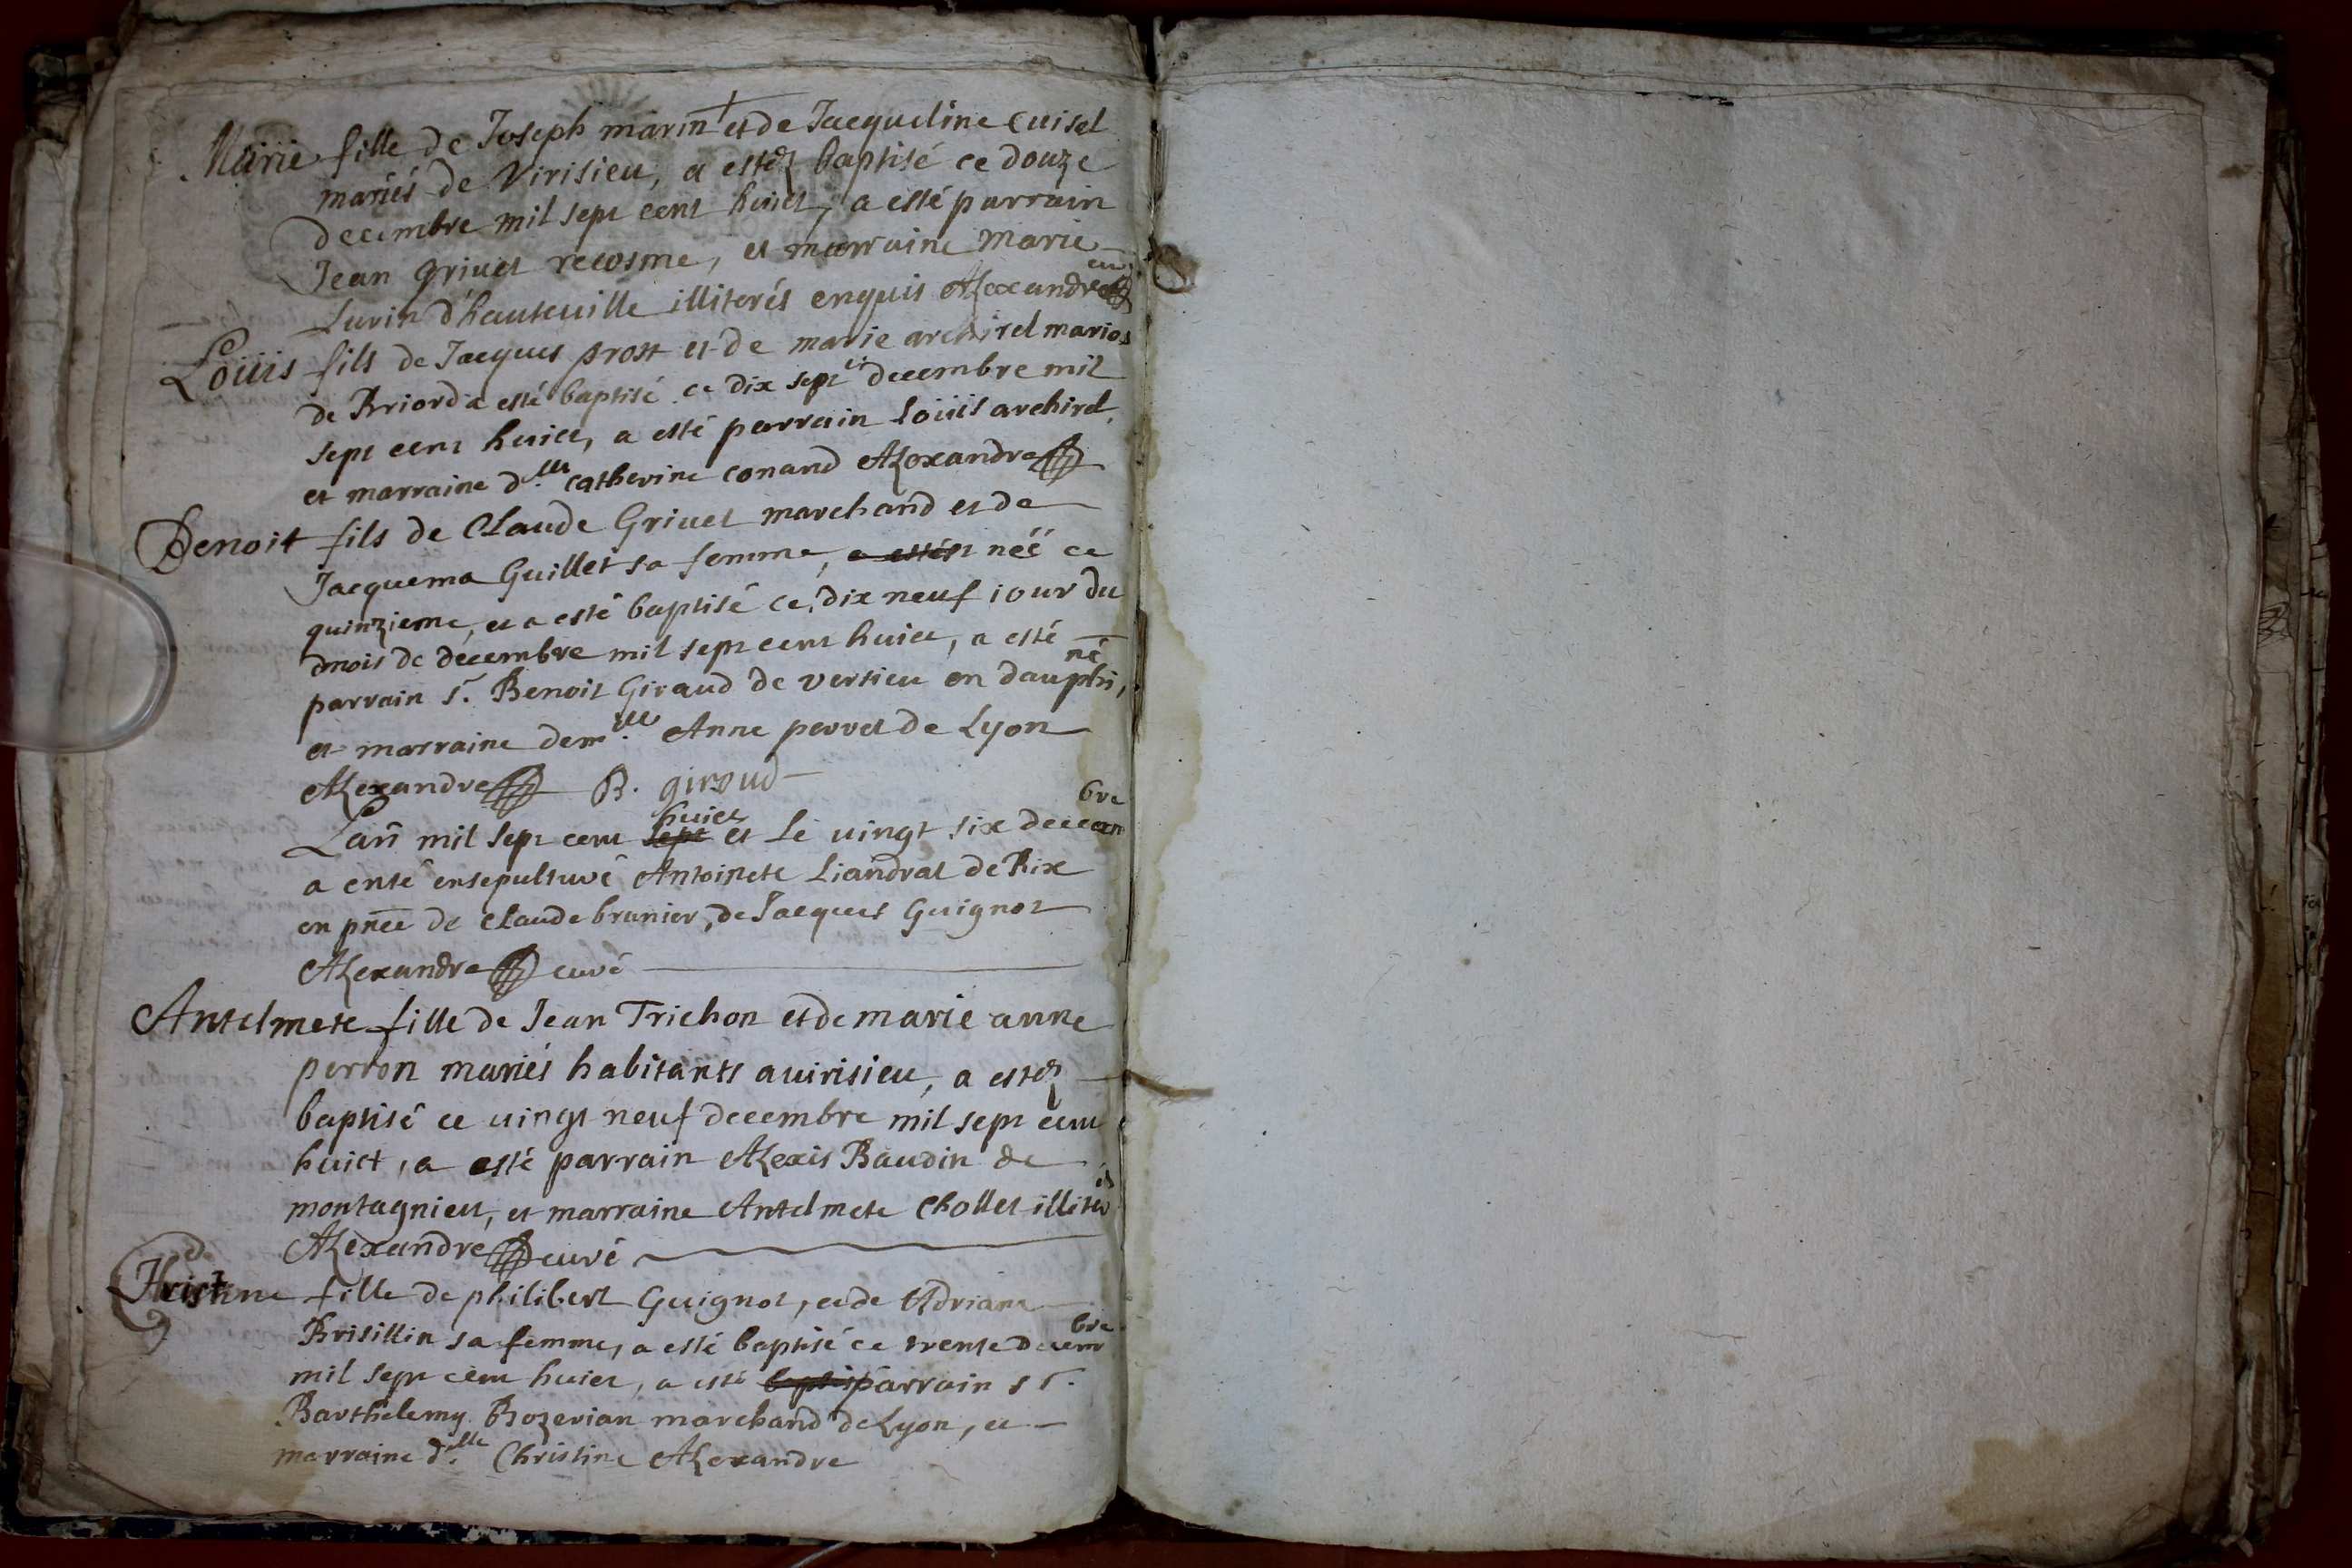 Marie fille de Joseph marin et de Jacqueline Cuisel
mariés de Virisieu, a estéz baptisé ce douze
decembre mil sept cent huict, a esté parrain
Jean Grivet recosme, et marraine Marie
Lurin d'hauteville illiterés enquis Alexandre
Loüis fils de Jacques prost et de marie archirel mariés
de Briord a esté baptisé ce dix sept decembre mil
sept cent huict, a esté parrain Loüis archirel,
et marraine d.lle catherine conand Alexandre
Benoit fils de Claude Grivet marchand et de
Jacquema Guillet sa femme, néé ce
quinzieme, et a esté baptisé ce dix neuf iour du
mois de decembre mil sept cent huict, a esté
parrain s.r Benoit Giraud de vertieu en dauphiné,
et marraine dem.lle Anne perret de Lyon
Alexandre B. giroud
Lan mil sept cent sept huict et le vingt six decembre
a ensté ensepulturé Antoinete Liandrat de Rix
en pnce de claude brunier, de Jacques Guignot
Alexandre curé
Antelmete fille de Jean Trichon et de marie anne
perron mariés habitants a virisieu, a estéz
baptisé ce vingt neuf decembre mil sept cent
huict, a esté parrain Alexis Baudin de
montagnieu, et marraine Antelmete Chollet illiterés
Alexandre curé
Christine fille de philibert Guignot, et de Adriane
Brisillin sa femme, a esté baptisé ce trente decembre
mil sept cent huict, a esté parrain s.r
Barthelemy Bozerian marchand de Lyon, et
marraine d.lle Christine Alexandre